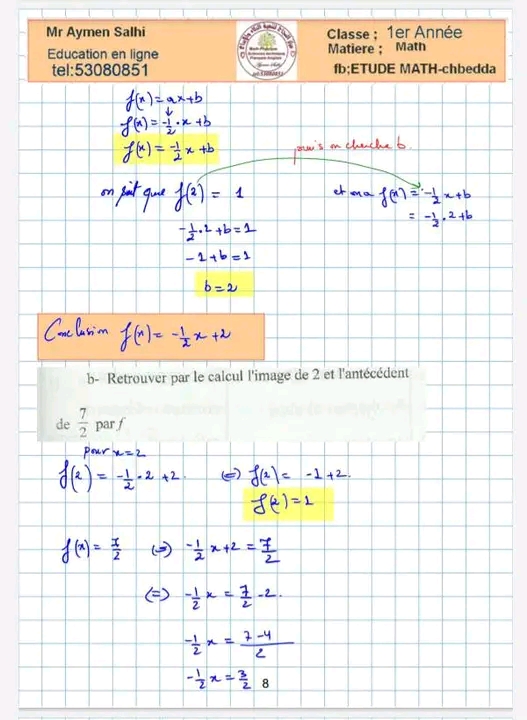 Mr Aymen Salhi
Education en ligne
tel:53080851
Classe ; 1er Année
Matiere ; Math
fb;ETUDE MATH-chbedda
f(x) = ax+b
f(x) = -1/2 · x + b
f(x) = -1/2 x + b
puis on cherche b.
on sait que f(2) = 1
et on a f(x) = -1/2 x + b
= -1/2 · 2 + b
-1/2 · 2 + b = 1
-1 + b = 1
b = 2
Conclusion f(x) = -1/2 x + 2
b- Retrouver par le calcul l'image de 2 et l'antécédent
de 7/2 par f
pour x = 2
f(2) = -1/2 · 2 + 2. (=) f(2) = -1 + 2.
f(2) = 1
f(x) = 7/2 (=) -1/2 x + 2 = 7/2
(=) -1/2 x = 7/2 - 2.
-1/2 x = 7-4/2
-1/2 x = 3/2
8